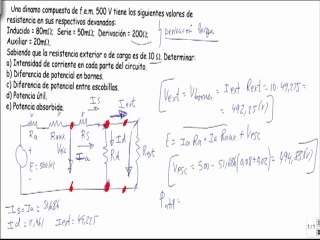 Una dinamo compuesta de f.e.m. 500 V tiene los siguientes valores de
resistencia en sus respectivos devanados:
Inducido = 80mΩ; Serie = 50mΩ; Derivación = 200Ω;
Auxiliar = 20mΩ.
Derivación larga
Sabiendo que la resistencia exterior o de carga es de 10 Ω. Determinar:
a) Intensidad de corriente en cada parte del circuito.
b) Diferencia de potencial en bornes.
c) Diferencia de potencial entre escobillas.
d) Potencia útil.
e) Potencia absorbida.
Vext = Vbornes = Iext Rext = 10·49,275 =
= 492,75 (V)
E = Ia Ra + Ia Raux + Vesc
Vesc = 500 - 51,686 (0,08 + 0,02) = 494,83 (V)
Putil =
Is
Iext
Ra
Raux
Rs
Vesc
Ia
Id
Rd
Rext
E = 500 V
Is = Ia =
Id =
Iext = 49,275
1/1